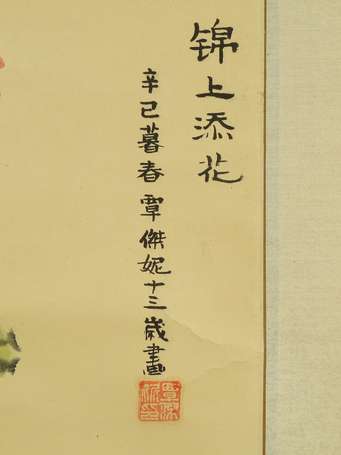 锦上添花
辛巳暮春覃傑妮十三歲畫